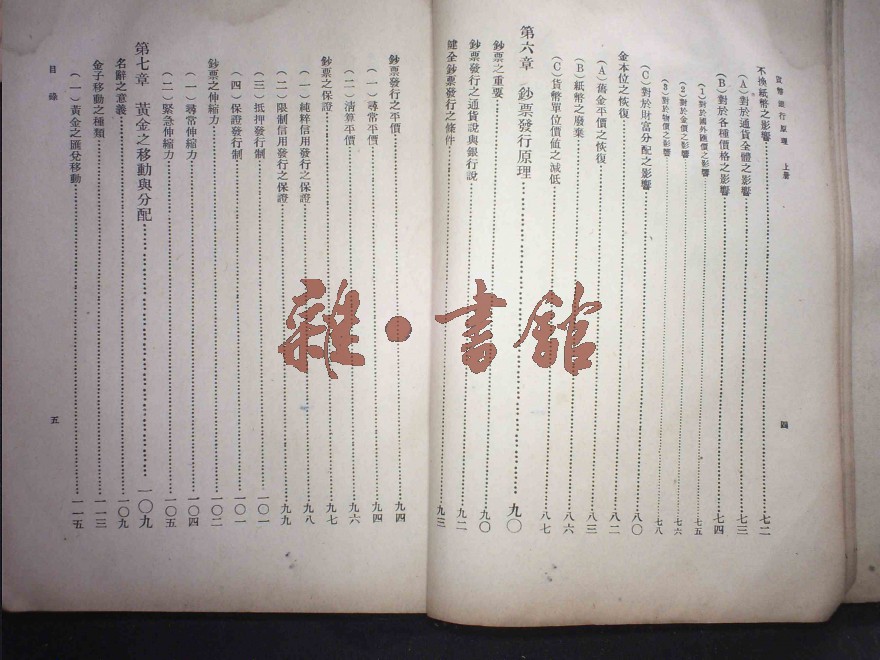 貨幣銀行原理 上册
四
不換紙幣之影響 七二
(A)對於通貨全體之影響 七三
(B)對於各種價格之影響 七四
(1)對於國外匯價之影響 七五
(2)對於金價之影響 七六
(3)對於物價之影響 七八
(C)對於財富分配之影響 八〇
金本位之恢復 八二
(A)舊金平價之恢復 八三
(B)紙幣之廢棄 八六
(C)貨幣單位價値之減低 八七
第六章 鈔票發行原理 九〇
鈔票之重要 九〇
鈔票發行之通貨說與銀行說 九二
健全鈔票發行之條件 九三
鈔票發行之平價 九四
(一)尋常平價 九四
(二)清算平價 九六
鈔票之保證 九七
(一)純粹信用發行之保證 九八
(二)限制信用發行之保證 九九
(三)抵押發行制 一〇一
(四)保證發行制 一〇一
鈔票之伸縮力 一〇二
(一)尋常伸縮力 一〇四
(二)緊急伸縮力 一〇五
第七章 黃金之移動與分配 一〇九
名辭之意義 一〇九
金子移動之種類 一一三
(一)黃金之匯兌移動 一一五
目錄
五
雜·書館